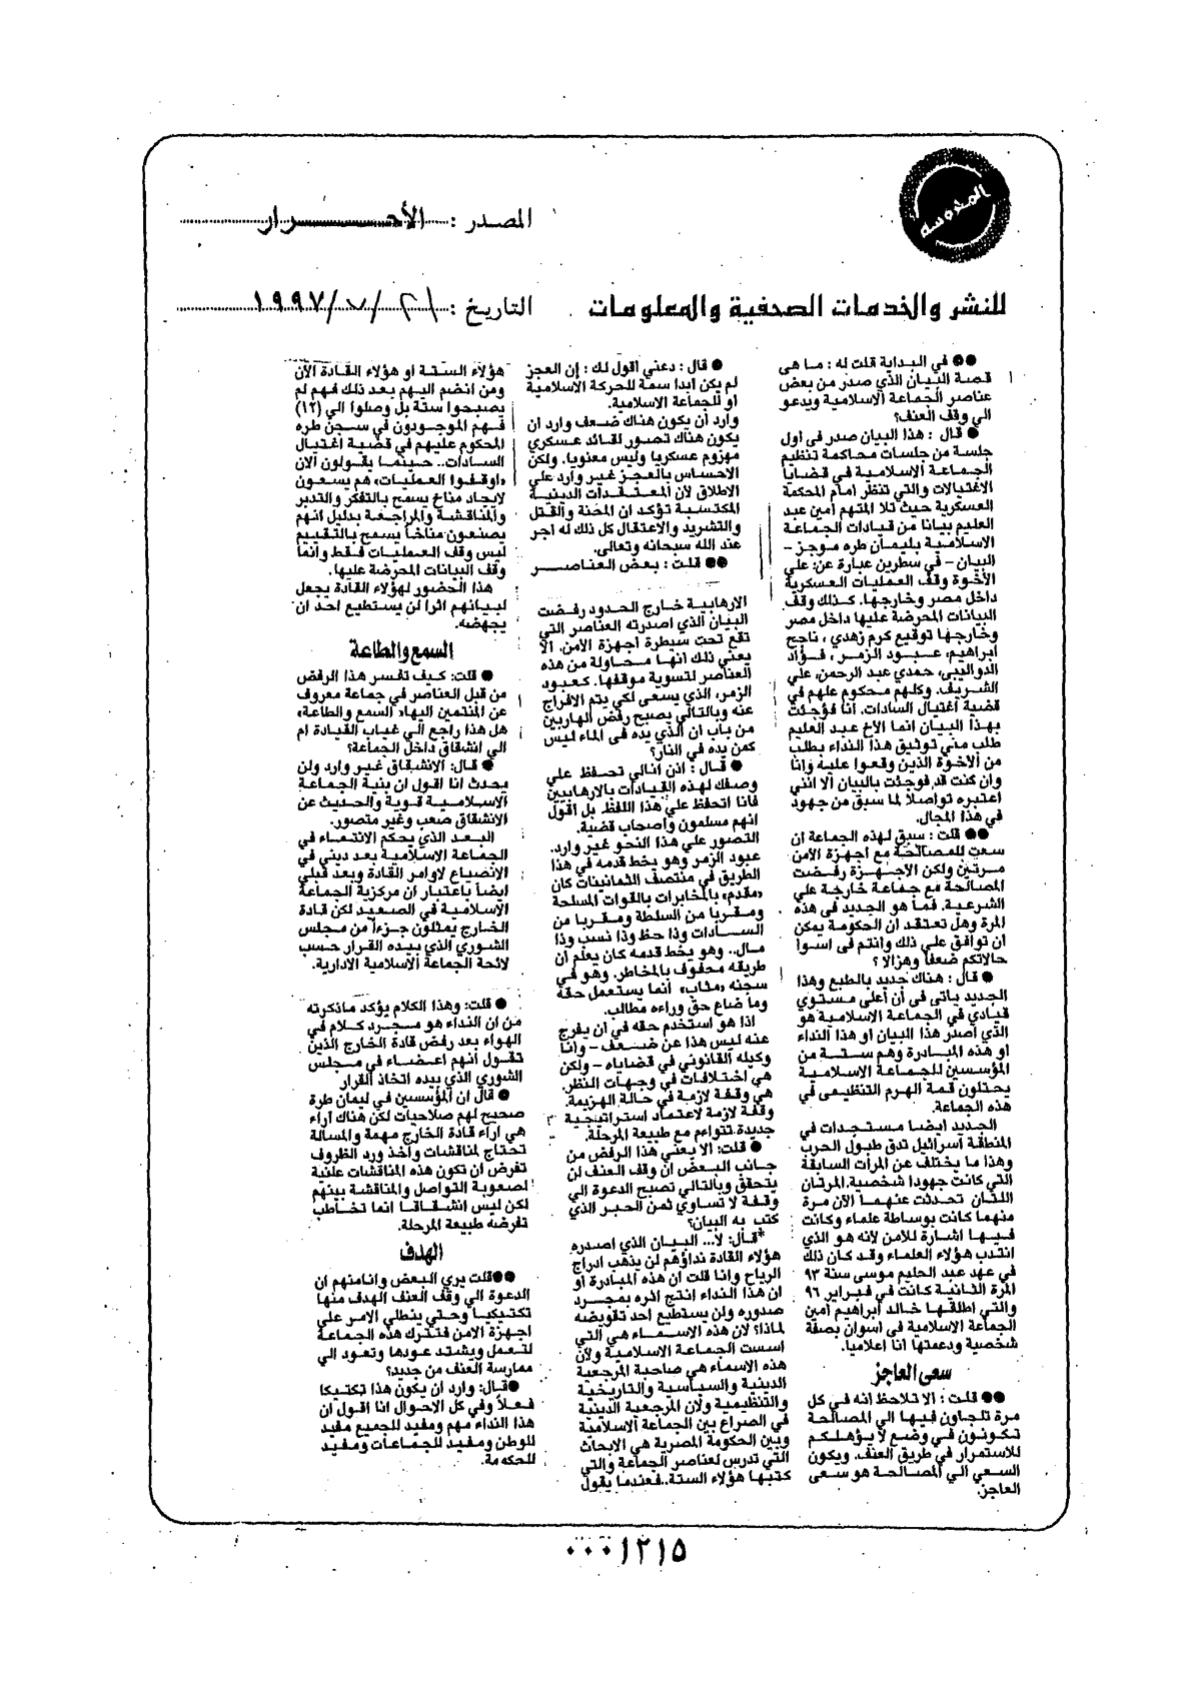 المدرسة
المصدر : الأحرار
للنشر والخدمات الصحفية والمعلومات
التاريخ : ٢١ / ٧ / ١٩٩٧
●● في البداية قلت له : ما هى
قصة البيان الذي صدر من بعض
عناصر الجماعة الاسلامية ويدعو
الى وقف العنف؟
● قال : هذا البيان صدر فى أول
جلسة من جلسات محاكمة تنظيم
الجماعة الاسلامية في قضايا
الاغتيالات والتي تنظر امام المحكمة
العسكرية حيث تلا المتهم أمين عبد
العليم بيانا من قيادات الجماعة
الاسلامية بليمان طره موجز -
البيان - في سطرين عبارة عن: على
الأخوة وقف العمليات العسكرية
داخل مصر وخارجها. كذلك وقف
البيانات المحرضة عليها داخل مصر
وخارجها توقيع كرم زهدي ، ناجح
ابراهيم، عبود الزمر ، فؤاد
الدواليبى، حمدي عبد الرحمن، علي
الشريف، وكلهم محكوم علهم في
قضية اغتيال السادات. انا فوجئت
بهذا البيان انما الأخ عبد العليم
طلب مني توثيق هذا النداء بطلب
من الأخوة الذين وقعوا عليه وانا
وان كنت قد فوجئت بالبيان ألا انني
اعتبره تواصلا لما سبق من جهود
في هذا المجال.
●● قلت : سبق لهذه الجماعة ان
سعت للمصالحة مع اجهزة الأمن
مرتين ولكن الأجهزة رفضت
المصالحة مع جماعة خارجة علي
الشرعية. فما هو الجديد فى هذه
المرة وهل تعتقد ان الحكومة يمكن
ان توافق علي ذلك وانتم فى اسوا
حالاتكم ضعفا وهزالا ؟
● قال : هناك جديد بالطبع وهذا
الجديد ياتى فى أن أعلى مستوي
قيادي في الجماعة الاسلامية هو
الذي أصدر هذا البيان او هذا النداء
او هذه المبادرة وهم ستة من
المؤسسين للجماعة الاسلامية
يحتلون قمة الهرم التنظيمى في
هذه الجماعة.
الجديد ايضا مستجدات في
المنطقة اسرائيل تدق طبول الحرب
وهذا ما يختلف عن المرات السابقة
التي كانت جهودا شخصية. المرتان
اللتان تحدثت عنهما الآن مرة
منهما كانت بوساطة علماء وكانت
فيها اشارة للأمن لأنه هو الذي
انتدب هؤلاء العلماء وقد كان ذلك
في عهد عبد الحليم موسى سنة ٩٣
المرة الثانية كانت في فبراير ٩٦
والتي اطلقها خالد ابراهيم أمين
الجماعة الاسلامية فى اسوان بصفة
شخصية ودعمتها انا اعلاميا.
سعى العاجز
●● قلت : ألا تلاحظ انه فى كل
مرة تلجاون فيها الى المصالحة
تكونون في وضع لا يؤهلكم
للاستمرار في طريق العنف. ويكون
السعي الي المصالحة هو سعى
العاجز.
● قال : دعني اقول لك : إن العجز
لم يكن ابدا سمة للحركة الاسلامية
او للجماعة الاسلامية.
وارد أن يكون هناك ضعف وارد ان
يكون هناك تصور لقائد عسكري
مهزوم عسكريا وليس معنويا. ولكن
الاحساس بالعجز غير وارد علي
الاطلاق لأن المعتقدات الدينية
المكتسبة تؤكد ان المحنة والقتل
والتشريد والاعتقال كل ذلك له اجر
عند الله سبحانه وتعالى.
●● قلت : بعض العناصر
الارهابية خارج الحدود رفضت
البيان الذي اصدرته العناصر التي
تقع تحت سيطرة اجهزة الامن. الا
يعني ذلك انها محاولة من هذه
العناصر لتسوية موقفها. كعبود
الزمر، الذي يسعى لكي يتم الافراج
عنه وبالتالي يصبح رفض الهاربين
من باب ان الذي يده فى الماء ليس
كمن يده في النار؟
● قال : اذن أنالى تحفظ علي
وصفك لهذه القيادات بالارهابيين
فانا اتحفظ علي هذا اللفظ بل اقول
انهم مسلمون وأصحاب قضية.
التصور علي هذا النحو غير وارد.
عبود الزمر وهو يخط قدمه في هذا
الطريق في منتصف الثمانينات كان
«مقدم» بالمخابرات بالقوات المسلحة
ومقربا من السلطة ومقربا من
السادات وذا حظ وذا نسب وذا
مال.. وهو يخط قدمه كان يعلم أن
طريقه محفوف بالمخاطر. وهو في
سجنه «مثاب» انما يستعمل حقه
وما ضاع حق وراءه مطالب.
اذا هو استخدم حقه في ان يفرج
عنه ليس هذا عن ضعف - وأنا
وكيله القانوني في قضاياه - ولكن
هي اختلافات في وجهات النظر.
هي وقفة لازمة في حالة الهزيمة.
وقفة لازمة لاعتماد استراتيجية
جديدة تتواءم مع طبيعة المرحلة.
● قلت: الا يعني هذا الرفض من
جانب البعض أن وقف العنف لن
يتحقق وبالتالي تصبح الدعوة الي
وقفة لا تساوي ثمن الحبر الذي
كتب به البيان؟
*قال: لا... البيان الذي اصدره
هؤلاء القادة نداؤهم لن يذهب ادراج
الرياح وانا قلت ان هذه المبادرة او
ان هذا النداء انتج اثره بمجرد
صدوره ولن يستطيع احد تقويضه
لماذا؟ لأن هذه الاسماء هي التي
اسست الجماعة الاسلامية ولأن
هذه الاسماء هي صاحبة المرجعية
الدينية والسياسية والتاريخية
والتنظيمية ولأن المرجعية الدينية
في الصراع بين الجماعة الاسلامية
وبين الحكومة المصرية هي الابحاث
التي تدرس لعناصر الجماعة والتي
كتبها هؤلاء الستة.. فعندما يقول
هؤلاء الستة او هؤلاء القادة الآن
ومن انضم اليهم بعد ذلك فهم لم
يصبحوا ستة بل وصلوا الي (١٢)
فهم الموجودون في سجن طره
المحكوم عليهم في قضية اغتيال
السادات.. حينما يقولون الآن
«اوقفوا العمليات» هم يسعون
لايجاد مناخ يسمح بالتفكر والتدبر
والمناقشة والمراجعة بدليل انهم
يصنعون مناخا يسمح بالتقييم
ليس وقف العمليات فقط وانما
وقف البيانات المحرضة عليها.
هذا الحضور لهؤلاء القادة يجعل
لبيانهم اثرا لن يستطيع احد ان
يجهضه.
السمع والطاعة
● قلت: كيف تفسر هذا الرفض
من قبل العناصر في جماعة معروف
عن المنتمين اليها «السمع والطاعة»
هل هذا راجع الي غياب القيادة ام
الي انشقاق داخل الجماعة؟
● قال: الانشقاق غير وارد ولن
يحدث انا اقول ان بنية الجماعة
الاسلامية قوية والحديث عن
الانشقاق صعب وغير متصور.
البعد الذي يحكم الانتماء في
الجماعة الاسلامية بعد ديني في
الانصياع لاوامر القادة وبعد قبلي
ايضا باعتبار ان مركزية الجماعة
الاسلامية في الصعيد لكن قادة
الخارج يمثلون جزءاً من مجلس
الشوري الذي بيده القرار حسب
لائحة الجماعة الاسلامية الادارية.
● قلت: وهذا الكلام يؤكد ماذكرته
من ان النداء هو مجرد كلام في
الهواء بعد رفض قادة الخارج الذين
تقول أنهم اعضاء في مجلس
الشوري الذي بيده اتخاذ القرار
● قال ان المؤسسين في ليمان طرة
صحيح لهم صلاحيات لكن هناك أراء
هي آراء قادة الخارج مهمة والمسالة
تحتاج لمناقشات واخذ ورد الظروف
تفرض ان تكون هذه المناقشات علنية
لصعوبة التواصل والمناقشة بينهم
لكن ليس انشقاقا انما تخاطب
تفرضه طبيعة المرحلة.
الهدف
●●قلت يري البعض وانامنهم ان
الدعوة الي وقف العنف الهدف منها
تكتيكيا وحتي ينطلي الامر علي
اجهزة الامن فتترك هذه الجماعة
لتعمل ويشتد عودها وتعود الي
ممارسة العنف من جديد؟
●قال: وارد ان يكون هذا تكتيكا
فعلاً وفي كل الاحوال انا اقول ان
هذا النداء مهم ومفيد للجميع مفيد
للوطن ومفيد للجماعات ومفيد
للحكومة.
٠٠٠١٢١٥